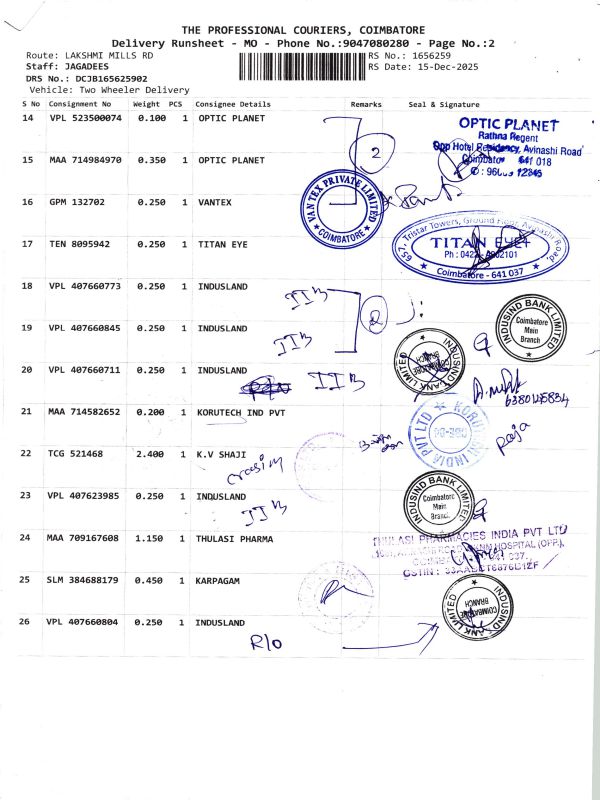 THE PROFESSIONAL COURIERS, COIMBATORE
Delivery Runsheet - MO - Phone No.:9047080280 - Page No.:2
Route: LAKSHMI MILLS RD
RS No.: 1656259
Staff: JAGADEES
RS Date: 15-Dec-2025
DRS No.: DCJB165625902
Vehicle: Two Wheeler Delivery
S No Consignment No Weight PCS Consignee Details Remarks Seal & Signature
14 VPL 523500074 0.100 1 OPTIC PLANET
OPTIC PLANET
Rathna Regent
Opp Hotel Residency, Avinashi Road
Coimbatore 641 018
2
15 MAA 714984970 0.350 1 OPTIC PLANET
16 GPM 132702 0.250 1 VANTEX
VAN TEX PRIVATE LIMITED
COIMBATORE
17 TEN 8095942 0.250 1 TITAN EYE
657, Tristar Towers, Ground Floor, Avinashi Road,
TITAN EYE+
Coimbatore - 641 037
18 VPL 407660773 0.250 1 INDUSLAND
IIB
2
INDUSIND BANK LIMITED
Coimbatore
Main
Branch
19 VPL 407660845 0.250 1 INDUSLAND
IIB
20 VPL 407660711 0.250 1 INDUSLAND
IIB
INDUSIND BANK LIMITED
COIMBATORE
BRANCH
21 MAA 714582652 0.200 1 KORUTECH IND PVT
KORUTECH INDIA PVT LTD
22 TCG 521468 2.400 1 K.V SHAJI
23 VPL 407623985 0.250 1 INDUSLAND
IIB
INDUSIND BANK LIMITED
Coimbatore
Main
Branch
24 MAA 709167608 1.150 1 THULASI PHARMA
THULASI PHARMACIES INDIA PVT LTD
HOSPITAL (OPP.),
25 SLM 384688179 0.450 1 KARPAGAM
26 VPL 407660804 0.250 1 INDUSLAND
R/O
INDUSIND BANK LIMITED
COIMBATORE
BRANCH